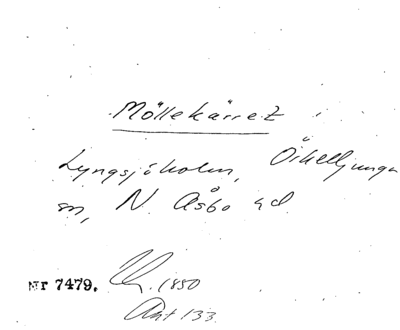 Möllekärret
Lyngsjöholm, Örkelljunga
sn, N. Åsbo hd
Nr 7479. 1850
Akt 133